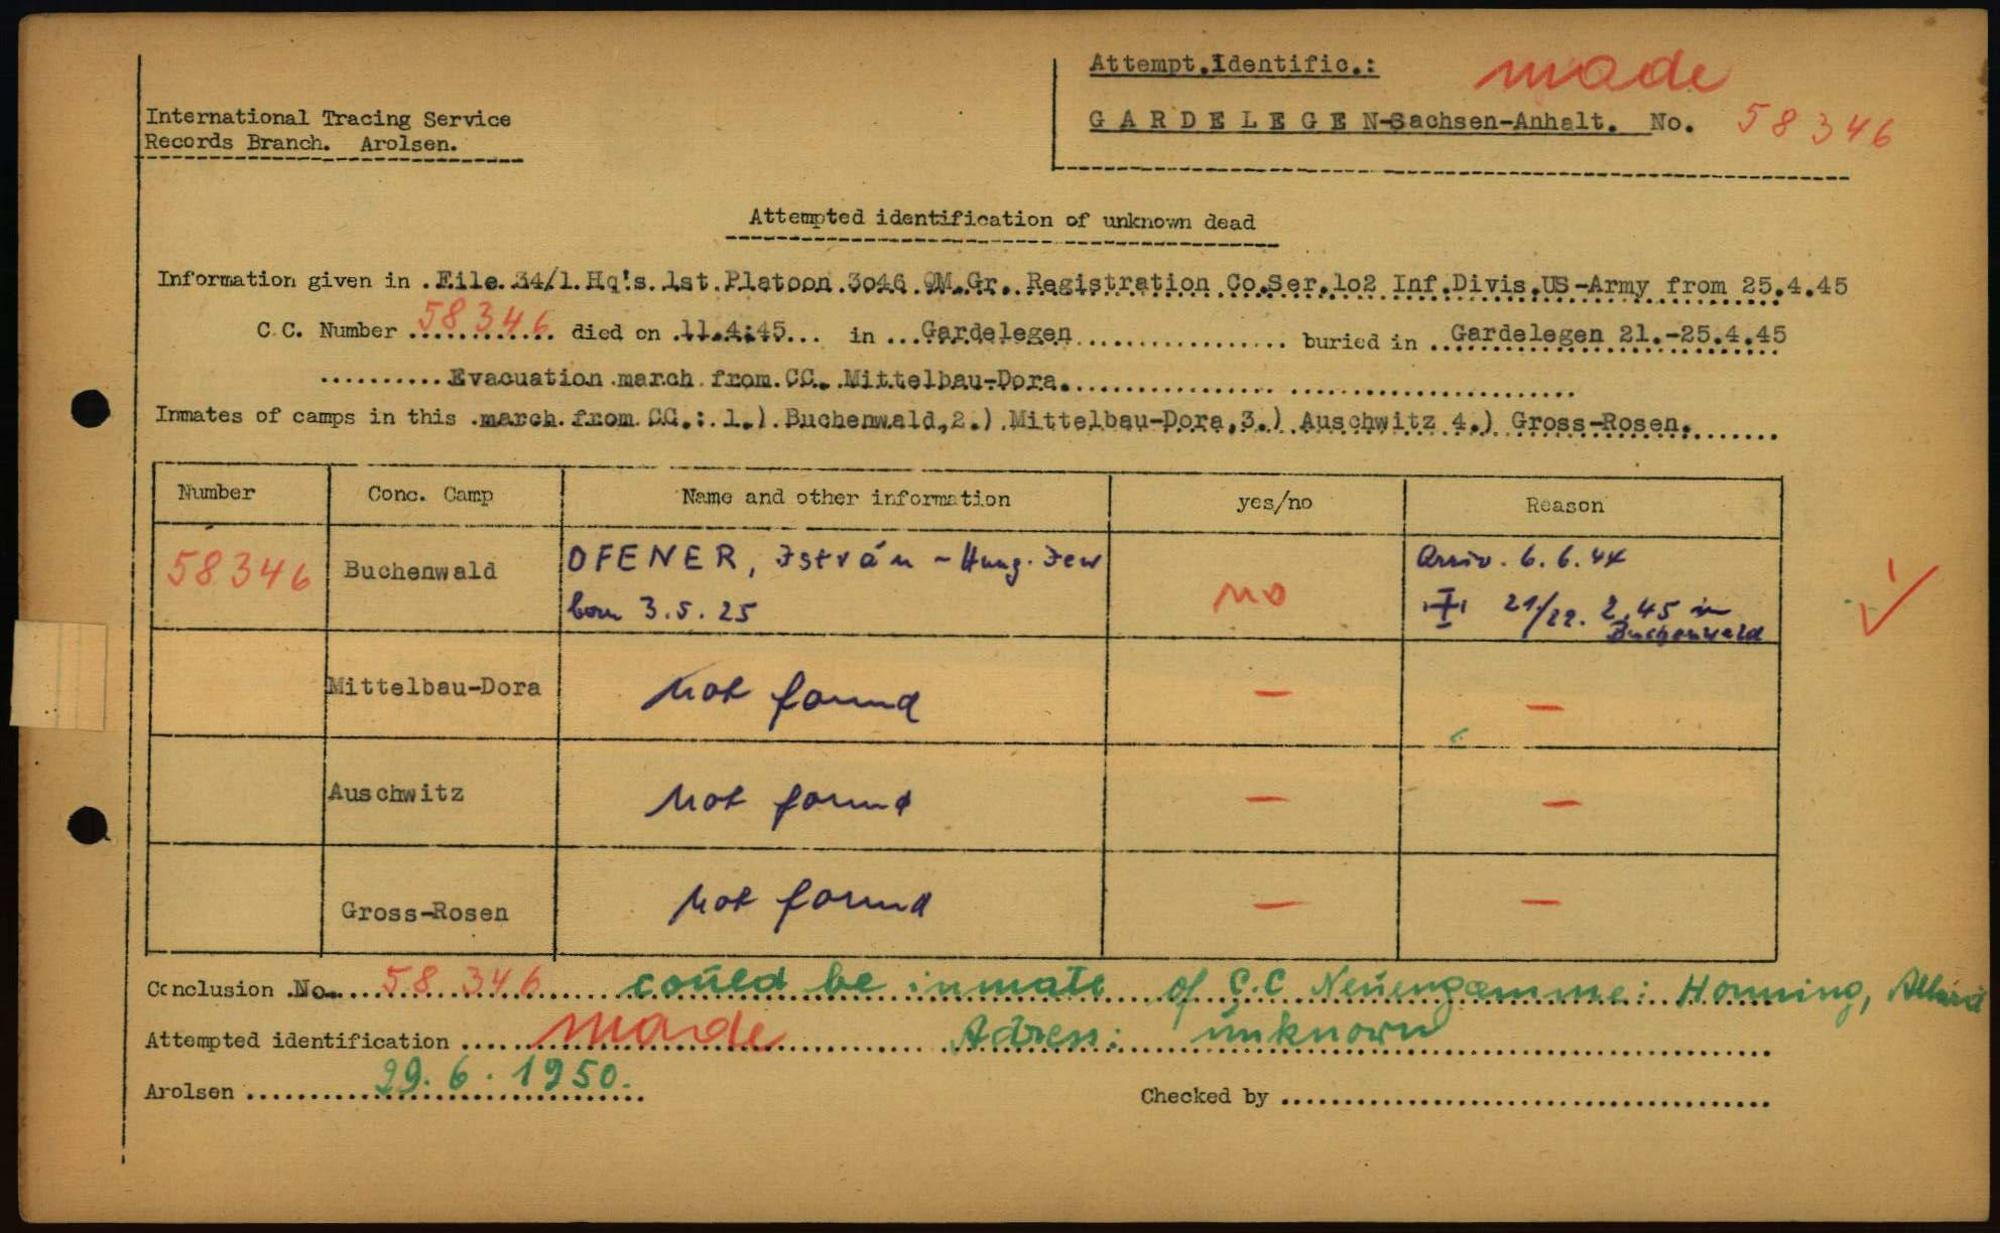 Attempt.Identific.: made
International Tracing Service
Records Branch. Arolsen.
G A R D E L E G E N-Sachsen-Anhalt. No. 58346
Attempted identification of unknown dead
Information given in .File.34/1.Hq's.1st.Platoon.3o46.QM.Gr..Registration.Co.Ser.1o2 Inf.Divis.US-Army from 25.4.45
C.C. Number 58346 died on .11.4.45... in ...Gardelegen................. buried in ..Gardelegen 21.-25.4.45
..........Evacuation.march.from.CC..Mittelbau-Dora.................................
Inmates of camps in this .march.from.CC.:.1.).Buchenwald,2.).Mittelbau-Dora,3.).Auschwitz 4.) Gross-Rosen.......
Number Conc. Camp Name and other information yes/no Reason
58346 Buchenwald OFENER, István - Hung. Jew no Arriv. 6.6.44
born 3.5.25 21/22. 2.45 in
Buchenwald
Mittelbau-Dora not found — —
Auschwitz not found — —
Gross-Rosen not found — —
Conclusion .No. 58346 could be inmate of C.C Neuengamme:
Attempted identification made Adress: unknown
Arolsen 29.6.1950.
Checked by ........................................